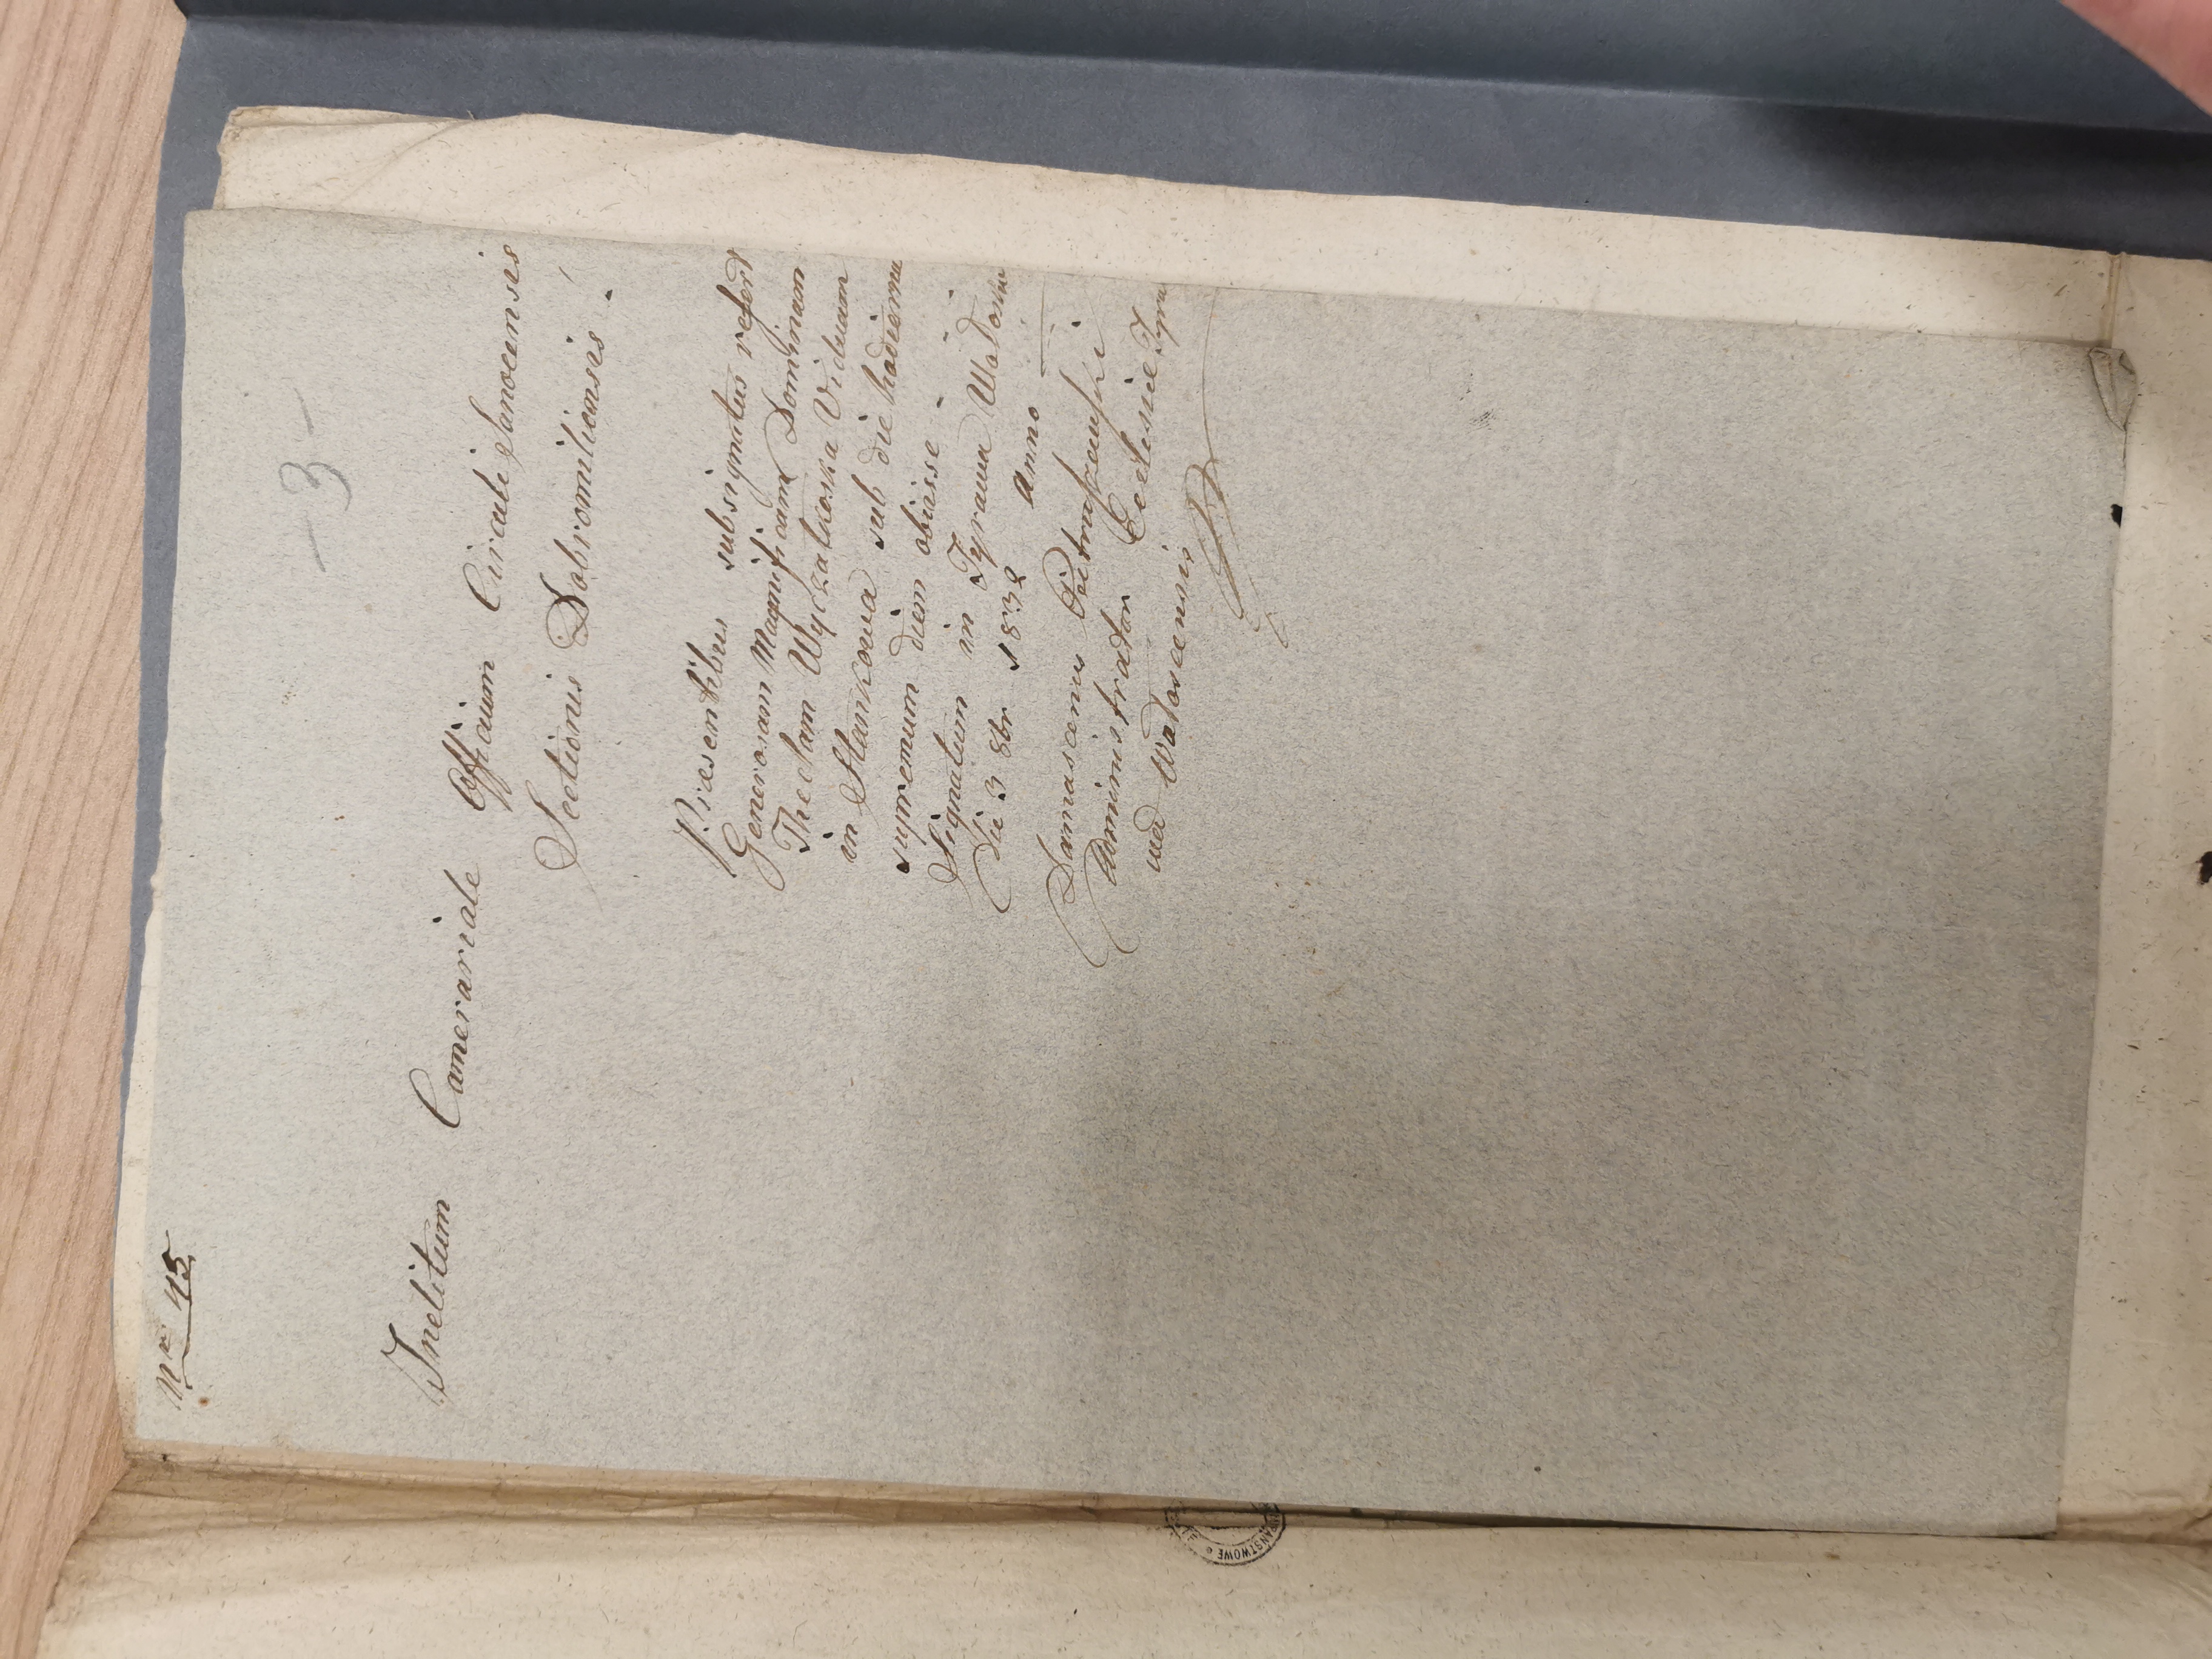 Nr 43
- 3 -
Inclitum Camerariale Officium Circuli Sanocensis
Sectionis Dobromiliensis.
Praesentibus subsignatus refert
Generosam Magnificam Dominam
Theclam Wyczalkoska Viduam
in Stankowa sub die hodierna
supremum diem obiisse.
Signatum in Tyrawa Wołoska
Die 3 8br 1832 Anno
Damascenus Pietruszewski
Administrator Ecclesiae Tyra
wa Wałoscensis
PAŃSTWOWE